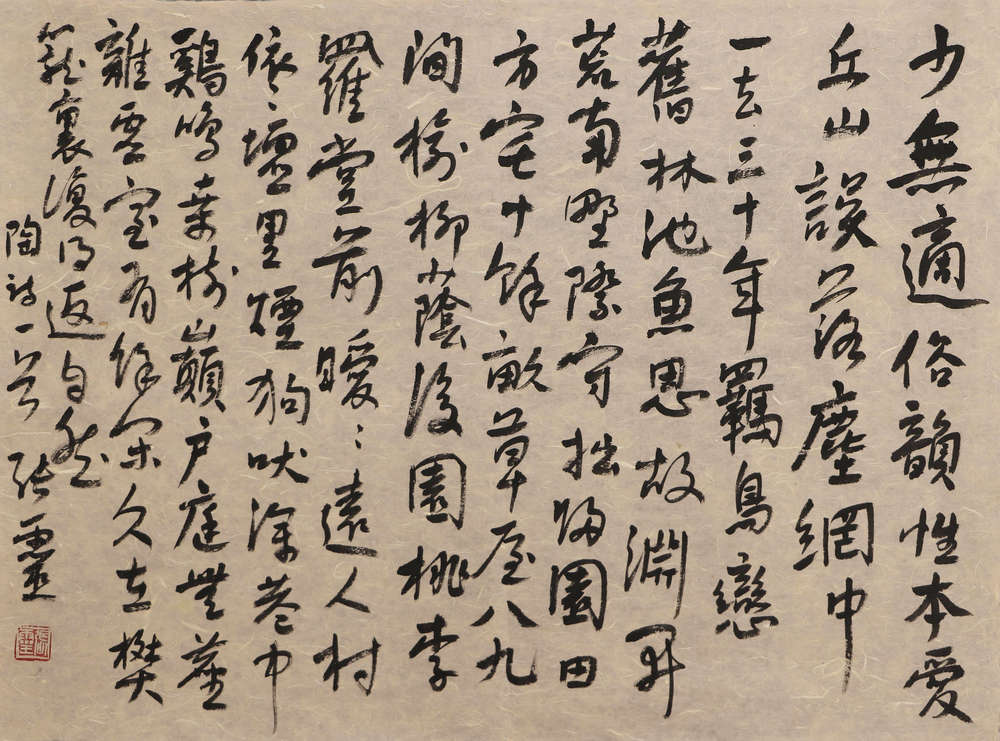 少無適俗韻性本愛
丘山誤落塵網中
一去三十年羈鳥戀
舊林池魚思故淵開
荒南野際守拙歸園田
方宅十餘畝草屋八九
間榆柳蔭後園桃李
羅堂前曖〻遠人村
依〻墟里煙狗吠深巷中
鷄鳴桑樹巔戶庭無塵
雜虛室有餘閑久在樊
籠裏復得返自然
陶詩一首 張靈